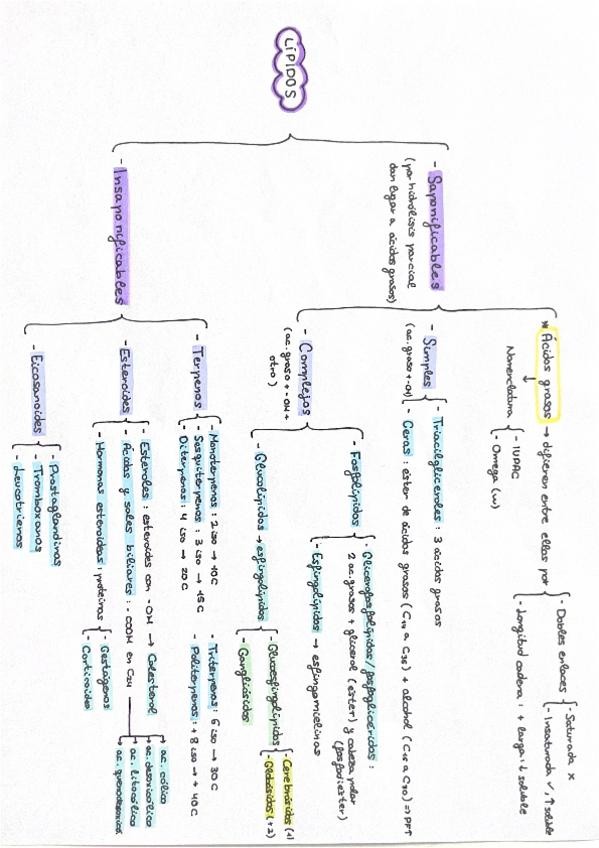 LÍPIDOS
- Saponificables
(por hidrólisis parcial
dan lugar a ácidos grasos)
* Ácidos grasos → difieren entre ellos por
- Dobles enlaces
- Saturada x
- Insaturada ✓, ↑ soluble
- Longitud cadena: + larga: ↓ soluble
↓
Nomenclatura
- IUPAC
- Omega (ω)
- Simples
(ac. graso + -OH)
- Triacilgliceroles: 3 ácidos grasos
- Ceras: éster de ácidos grasos (C14 a C36) + alcohol (C16 a C30) => PPT
- Complejos
(ac. graso + -OH +
otro)
- Fosfolípidos
- Glicerofosfolípidos/fosfoglicéridos:
2 ac. grasos + glicerol (éster) y cabeza polar
(fosfodiéster)
- Esfingolípidos → esfingomielinas
- Glucolípidos → esfingolípidos
- Glucoesfingolípidos
- Cerebrósidos (1)
- Globósidos (+2)
- Gangliósidos
- Insaponificables
- Terpenos
- Monoterpenos: 2 iso → 10C
- Sesquiterpenos: 3 iso → 15C
- Diterpenos: 4 iso → 20C
- Triterpenos: 6 iso → 30C
- Politerpenos: + 8 iso → + 40C
- Esteroides
- Esteroles: esteroides con -OH → Colesterol
- Ácidos y sales biliares: -COOH en C24
→ ac. cólico
→ ac. desoxicólico
→ ac. litocólico
→ ac. quenodesoxicol.
- Hormonas esteroideas: proteínas
- Gestágenos
- Corticoides
- Eicosanoides
- Prostaglandinas
- Tromboxanos
- Leucotrienos